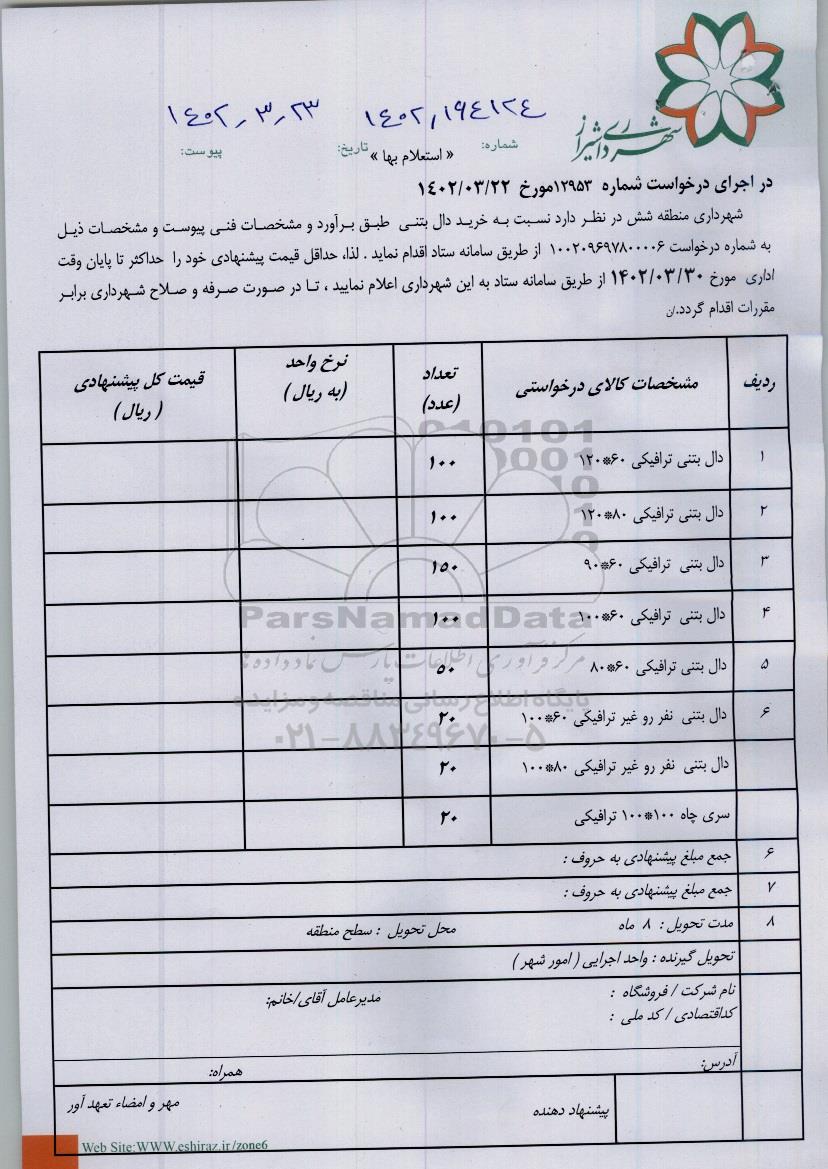 شهرداری شیراز
شماره: ۱۴۰۲٫۱۹۴۱۲۴
تاریخ: ۱۴۰۲٫۳٫۲۳
پیوست:
« استعلام بها »
در اجرای درخواست شماره ۱۲۹۵۳مورخ ۱۴۰۲/۰۳/۲۲
شهرداری منطقه شش در نظر دارد نسبت به خرید دال بتنی طبق برآورد و مشخصات فنی پیوست و مشخصات ذیل
به شماره درخواست ۱۰۰۲۰۹۶۹۷۸۰۰۰۰۶ از طریق سامانه ستاد اقدام نماید . لذا، حداقل قیمت پیشنهادی خود را حداکثر تا پایان وقت
اداری مورخ ۱۴۰۲/۰۳/۳۰ از طریق سامانه ستاد به این شهرداری اعلام نمایید ، تا در صورت صرفه و صلاح شهرداری برابر
مقررات اقدام گردد.ن
ردیف مشخصات کالای درخواستی تعداد (عدد) نرخ واحد (به ریال ) قیمت کل پیشنهادی ( ریال )
۱ دال بتنی ترافیکی ۶۰*۱۲۰ ۱۰۰
۲ دال بتنی ترافیکی ۸۰*۱۲۰ ۱۰۰
۳ دال بتنی ترافیکی ۶۰*۹۰ ۱۵۰
۴ دال بتنی ترافیکی ۶۰*۱۰۰ ۱۰۰
۵ دال بتنی ترافیکی ۶۰*۸۰ ۵۰
۶ دال بتنی نفر رو غیر ترافیکی ۶۰*۱۰۰ ۲۰
دال بتنی نفر رو غیر ترافیکی ۸۰*۱۰۰ ۲۰
سری چاه ۱۰۰*۱۰۰ ترافیکی ۲۰
۶ جمع مبلغ پیشنهادی به حروف :
۷ جمع مبلغ پیشنهادی به حروف :
۸ مدت تحویل : ۸ ماه محل تحویل : سطح منطقه
تحویل گیرنده : واحد اجرایی ( امور شهر )
نام شرکت / فروشگاه : مدیرعامل آقای/خانم:
کداقتصادی / کد ملی :
آدرس: همراه:
پیشنهاد دهنده مهر و امضاء تعهد آور
Web Site:WWW.eshiraz.ir/zone6
ParsNamadData
مرکز فرآوری اطلاعات پارس نماد داده ها
پایگاه اطلاع رسانی مناقصه و مزایده
۰۲۱-۸۸۳۴۹۶۷۰-۵